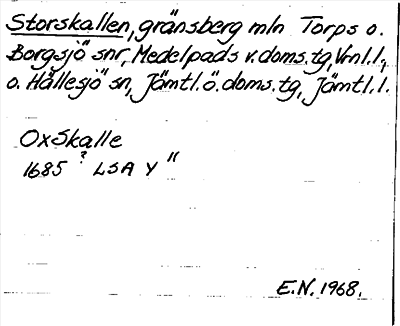 Storskallen, gränsberg mln Torps o.
Borgsjö snr, Medelpads v.doms.tg, Vrnl.l.,
o. Hällesjö sn, Jämtl.ö.doms.tg, Jämtl.l.
OxSkalle
1685 ? LSA Y "
E.N. 1968.